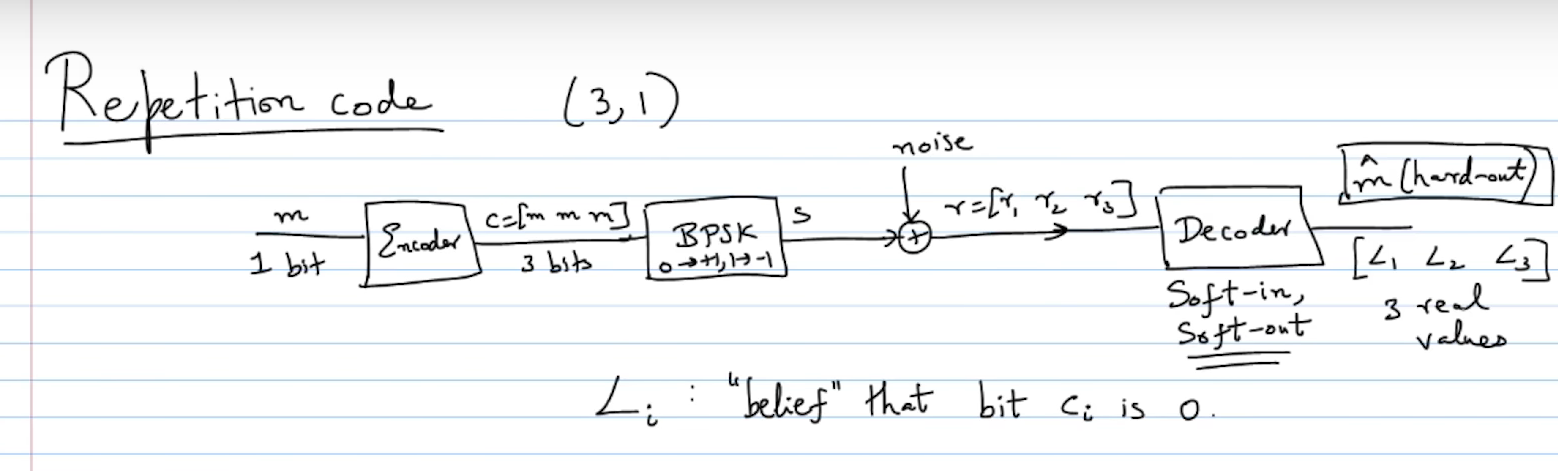 Repetition code (3,1)
noise
m̂ (hard-out)
m
1 bit
Encoder
c=[m m m]
3 bits
BPSK
0→+1, 1→-1
s
r=[r₁ r₂ r₃]
Decoder
Soft-in,
Soft-out
[L₁ L₂ L₃]
3 real
values
Lᵢ : "belief" that bit cᵢ is 0.